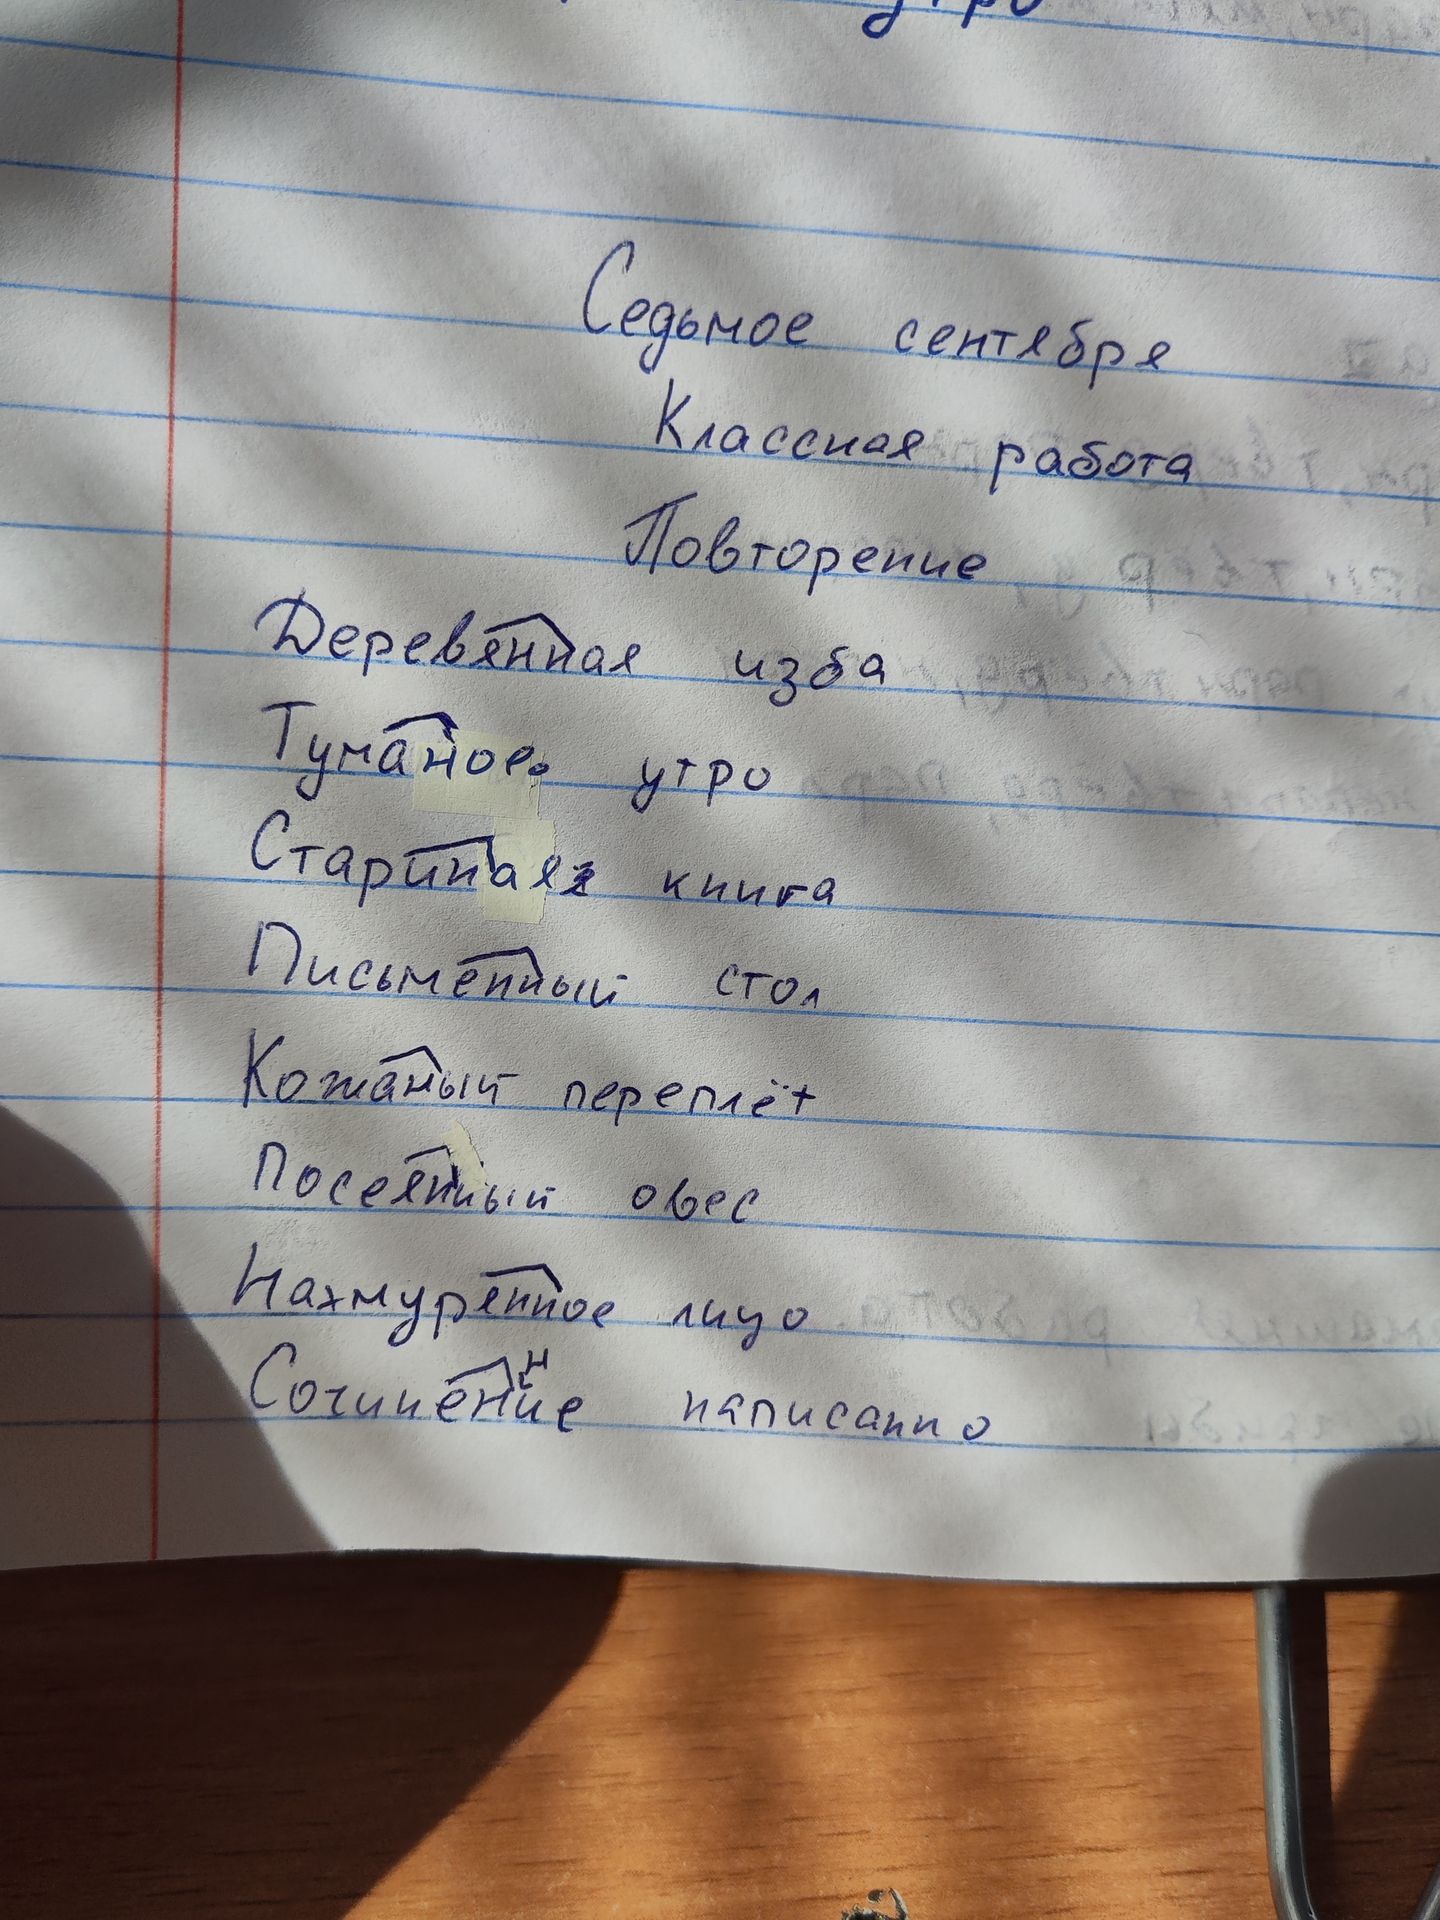 утро
Седьмое сентября
Классная работа
Повторение
Деревянная изба
Туманое утро
Стариная книга
Письменный стол
Кожаный переплёт
Посеянный овес
Нахмурянное лицо
Сочиненние написанно